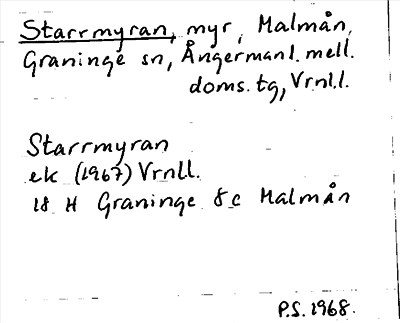 Starrmyran, myr, Malmån,
Graninge sn, Ångermanl. mell.
doms. tg, Vrnl.l.
Starrmyran
ek (1967) Vrnll.
18 H Graninge 8c Malmån
P.S. 1968.